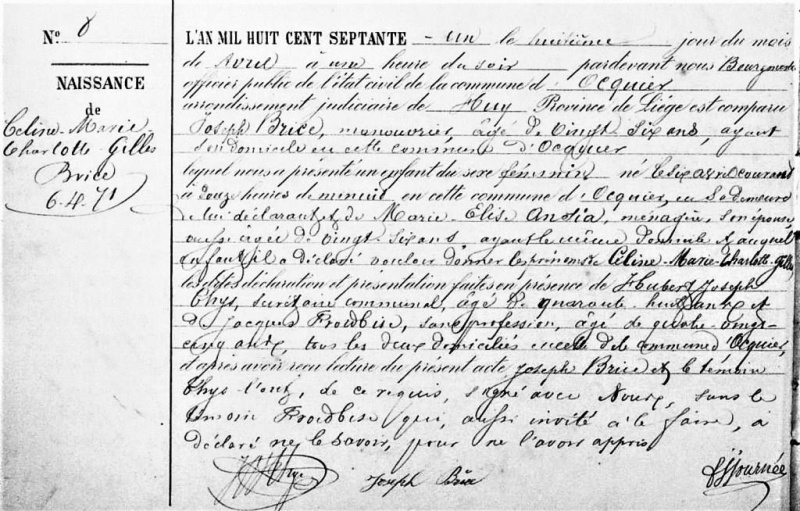 N° 8
NAISSANCE
de
Celine-Marie
Charlotte-Gilles
Brice
6.4.71
L'AN MIL HUIT CENT SEPTANTE - un le huitième jour du mois
de Avril à une heure du soir pardevant nous Bourgmestre
officier public de l'état civil de la commune d'Ocquier
arrondissement judiciaire de Huy Province de Liége est comparu
Joseph Brice, manouvrier, âgé de vingt six ans, ayant
son domicile en cette commune d'Ocquier
lequel nous a présenté un enfant du sexe féminin né le six avril courant
à douze heures de minuit en cette commune d'Ocquier, en sa demeure
de lui déclarant et de Marie-Elise Antia, ménagère, son épouse
aussi âgée de vingt six ans, ayant le même domicile et auquel
enfant il a déclaré vouloir donner les prénoms de Céline-Marie-Charlotte-Gilles
les dites déclaration et présentation faites en présence de Hubert Joseph
Thys, secrétaire communal, âgé de quarante huit ans et
de Jacques Froidbise, sans profession, âgé de quatre-vingt-
cinq ans, tous les deux domiciliés en cette dite commune d'Ocquier,
et après avoir reçu lecture du présent acte Joseph Brice et le témoin
Thys l'ont, de ce requis, signé avec Nous, sans le
témoin Froidbise qui, aussi invité à le faire, a
déclaré ne le savoir, pour ne l'avoir appris
HJThys Joseph Brice Journée